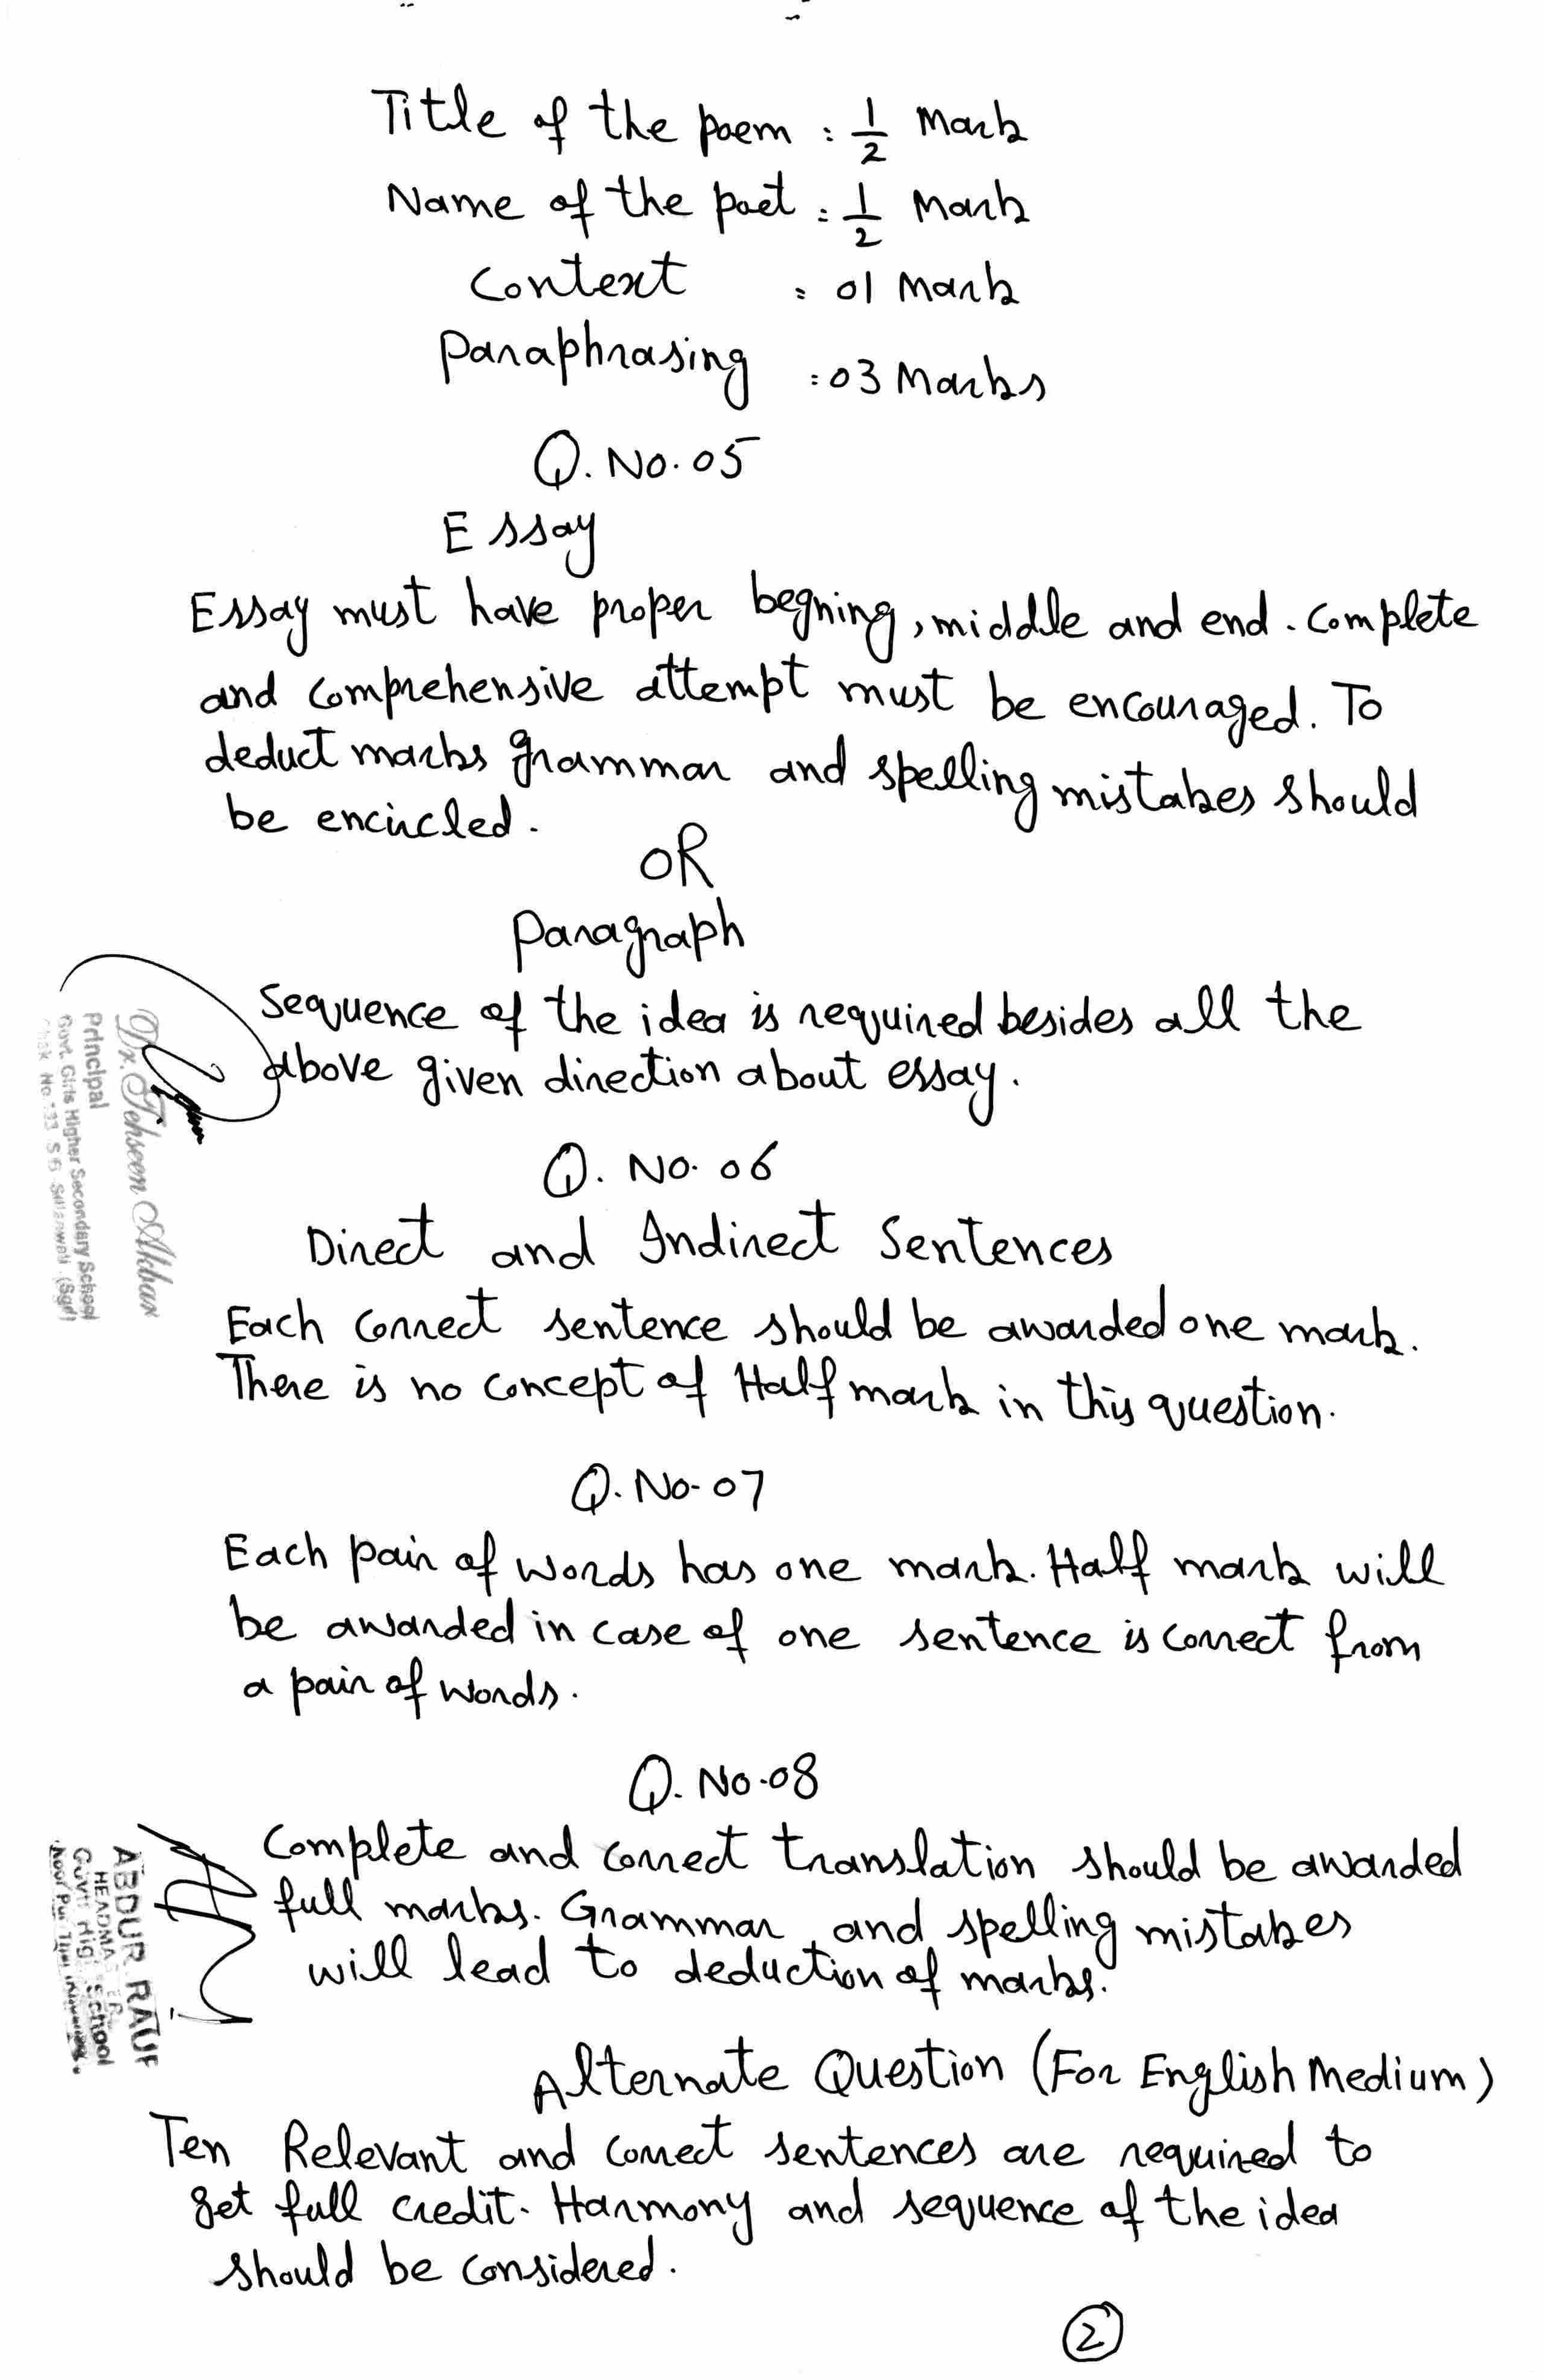 Title of the poem : 1/2 Mark
Name of the poet : 1/2 Mark
Context : 01 Mark
Paraphrasing : 03 Marks
Q. No. 05
Essay
Essay must have proper begning, middle and end. Complete
and comprehensive attempt must be encouraged. To
deduct marks grammar and spelling mistakes should
be encircled.
OR
Paragraph
Sequence of the idea is required besides all the
above given direction about essay.
Dr. Tehseen Akbar
Principal
Govt. Girls Higher Secondary School
Q. No. 06
Direct and Indirect Sentences
Each correct sentence should be awarded one mark.
There is no concept of Half mark in this question.
Q. No. 07
Each pair of words has one mark. Half mark will
be awarded in case of one sentence is correct from
a pair of words.
Q. No. 08
Complete and correct translation should be awarded
full marks. Grammar and spelling mistakes
will lead to deduction of marks.
ABDUR RAUF
Alternate Question (For English Medium)
Ten Relevant and correct sentences are required to
get full credit. Harmony and sequence of the idea
should be considered.
2